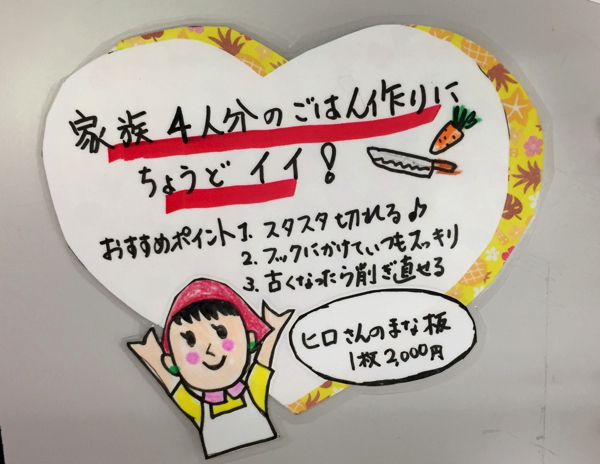 家族4人分のごはん作りに
ちょうどイイ!
おすすめポイント1. スタスタ切れる♪
2. フックにかけていつもスッキリ
3. 古くなったら削ぎ直せる
ヒロさんのまな板
1枚2,000円